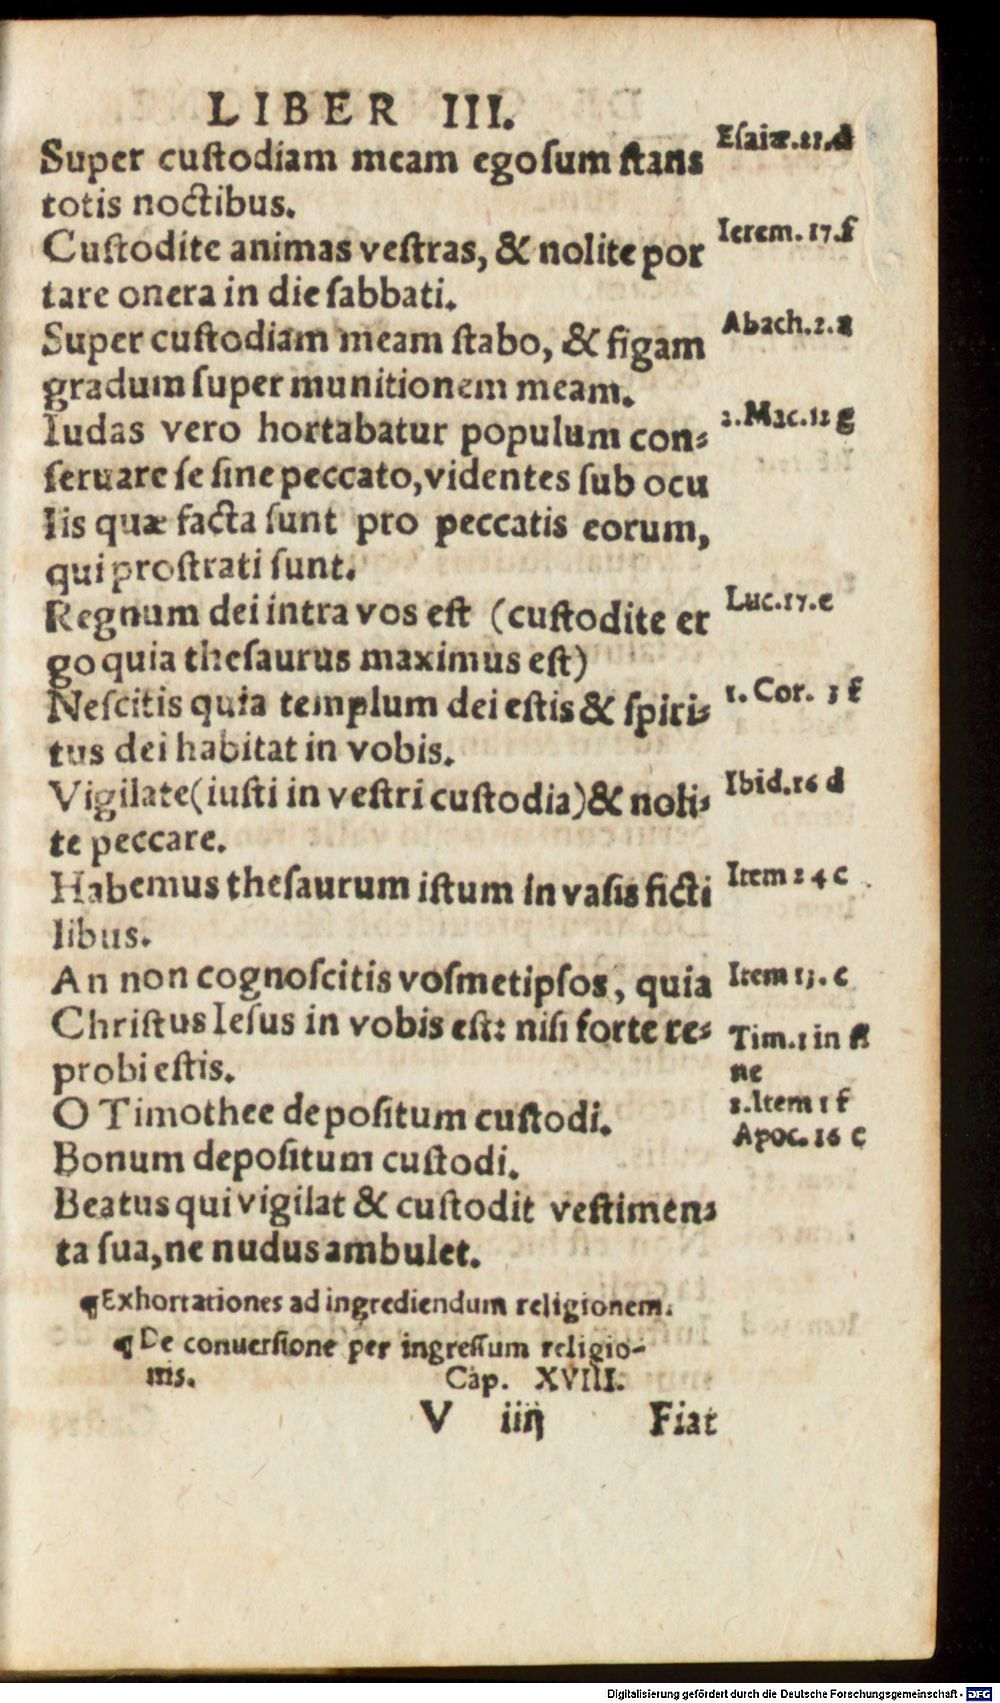 LIBER III.
Super cuſtodiam meam ego ſum ſtans
Eſaiæ.21.d
totis noctibus.
Cuſtodite animas veſtras, & nolite por
Ierem. 17.f
tare onera in die ſabbati.
Super cuſtodiam meam ſtabo, & figam
Abach.2.a
gradum ſuper munitionem meam.
Iudas vero hortabatur populum con⸗
2.Mac.12 g
ſeruare ſe ſine peccato, videntes ſub ocu
lis quæ facta ſunt pro peccatis eorum,
qui proſtrati ſunt.
Regnum dei intra vos eſt (cuſtodite er
Luc.17.e
go quia theſaurus maximus eſt)
Neſcitis quia templum dei eſtis & ſpiri⸗
1. Cor. 3 f
tus dei habitat in vobis.
Vigilate (iuſti in veſtri cuſtodia) & noli⸗
Ibid.16 d
te peccare.
Habemus theſaurum iſtum in vaſis ficti
Item 2 4 c
libus.
An non cognoſcitis voſmetipſos, quia
Item 13. c
Chriſtus Ieſus in vobis eſt: niſi forte re⸗
Tim.1 in fi
probi eſtis.
ne
O Timothee depoſitum cuſtodi.
2.Item 1 f
Bonum depoſitum cuſtodi.
Apoc. 16 c
Beatus qui vigilat & cuſtodit veſtimen⸗
ta ſua, ne nudus ambulet.
¶Exhortationes ad ingrediendum religionem.
¶De conuerſione per ingreſſum religio-
nis. Cap. XVIII.
V iiij Fiat
Digitalisierung gefördert durch die Deutsche Forschungsgemeinschaft - DFG